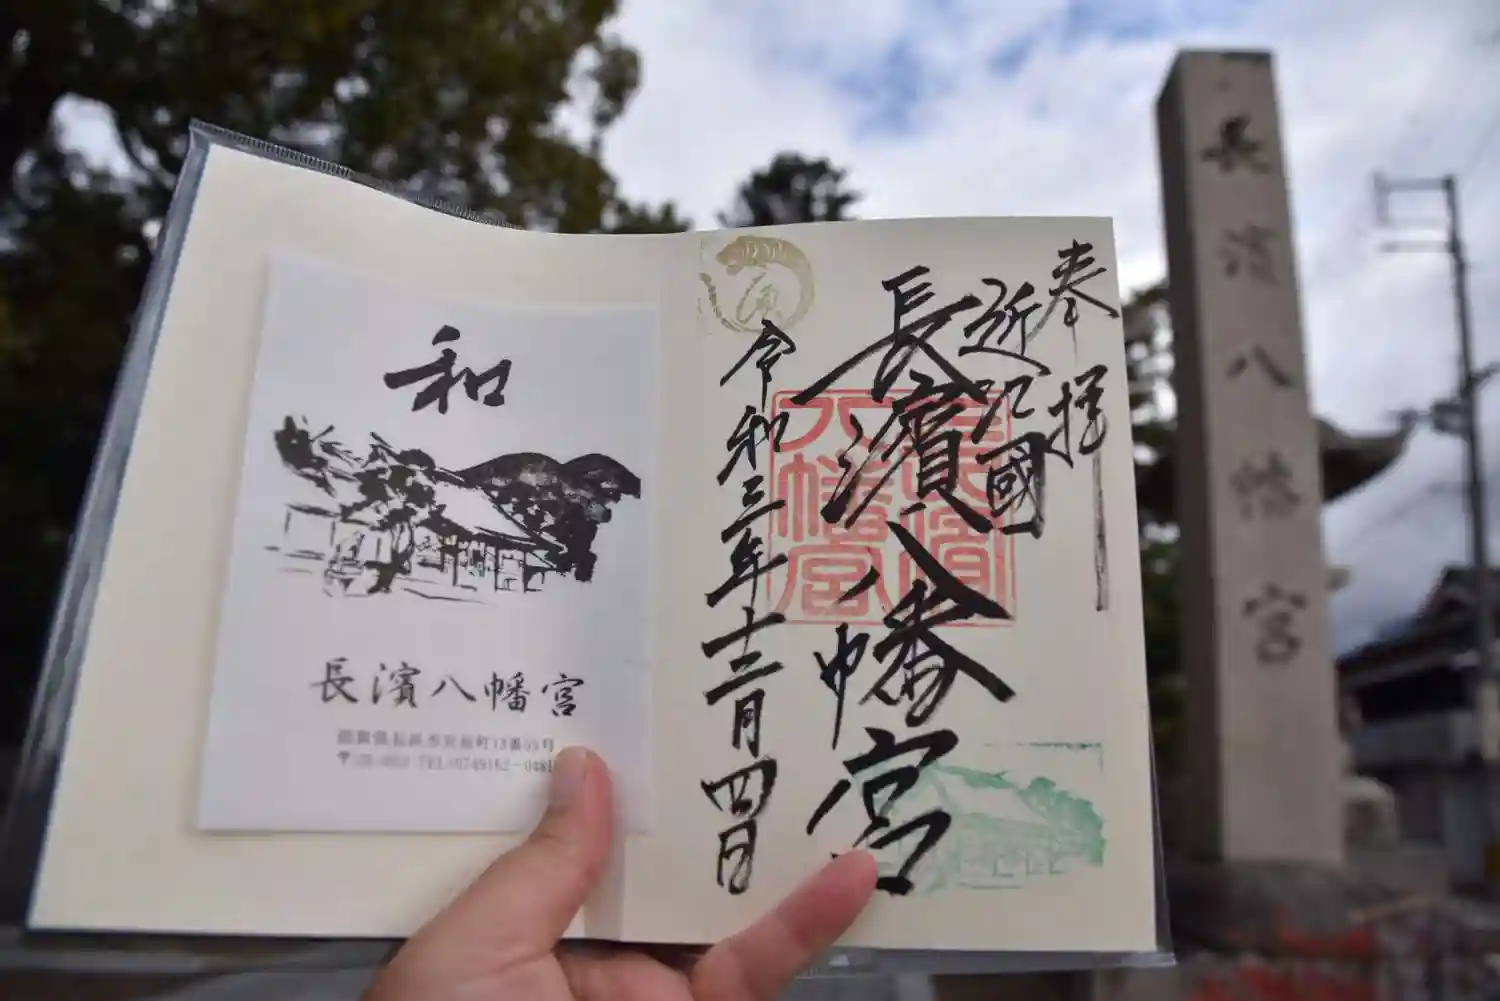 和
長濱八幡宮
奉拝
近江國
長濱八幡宮
令和三年十二月四日
長濱八幡宮
長濱八幡宮